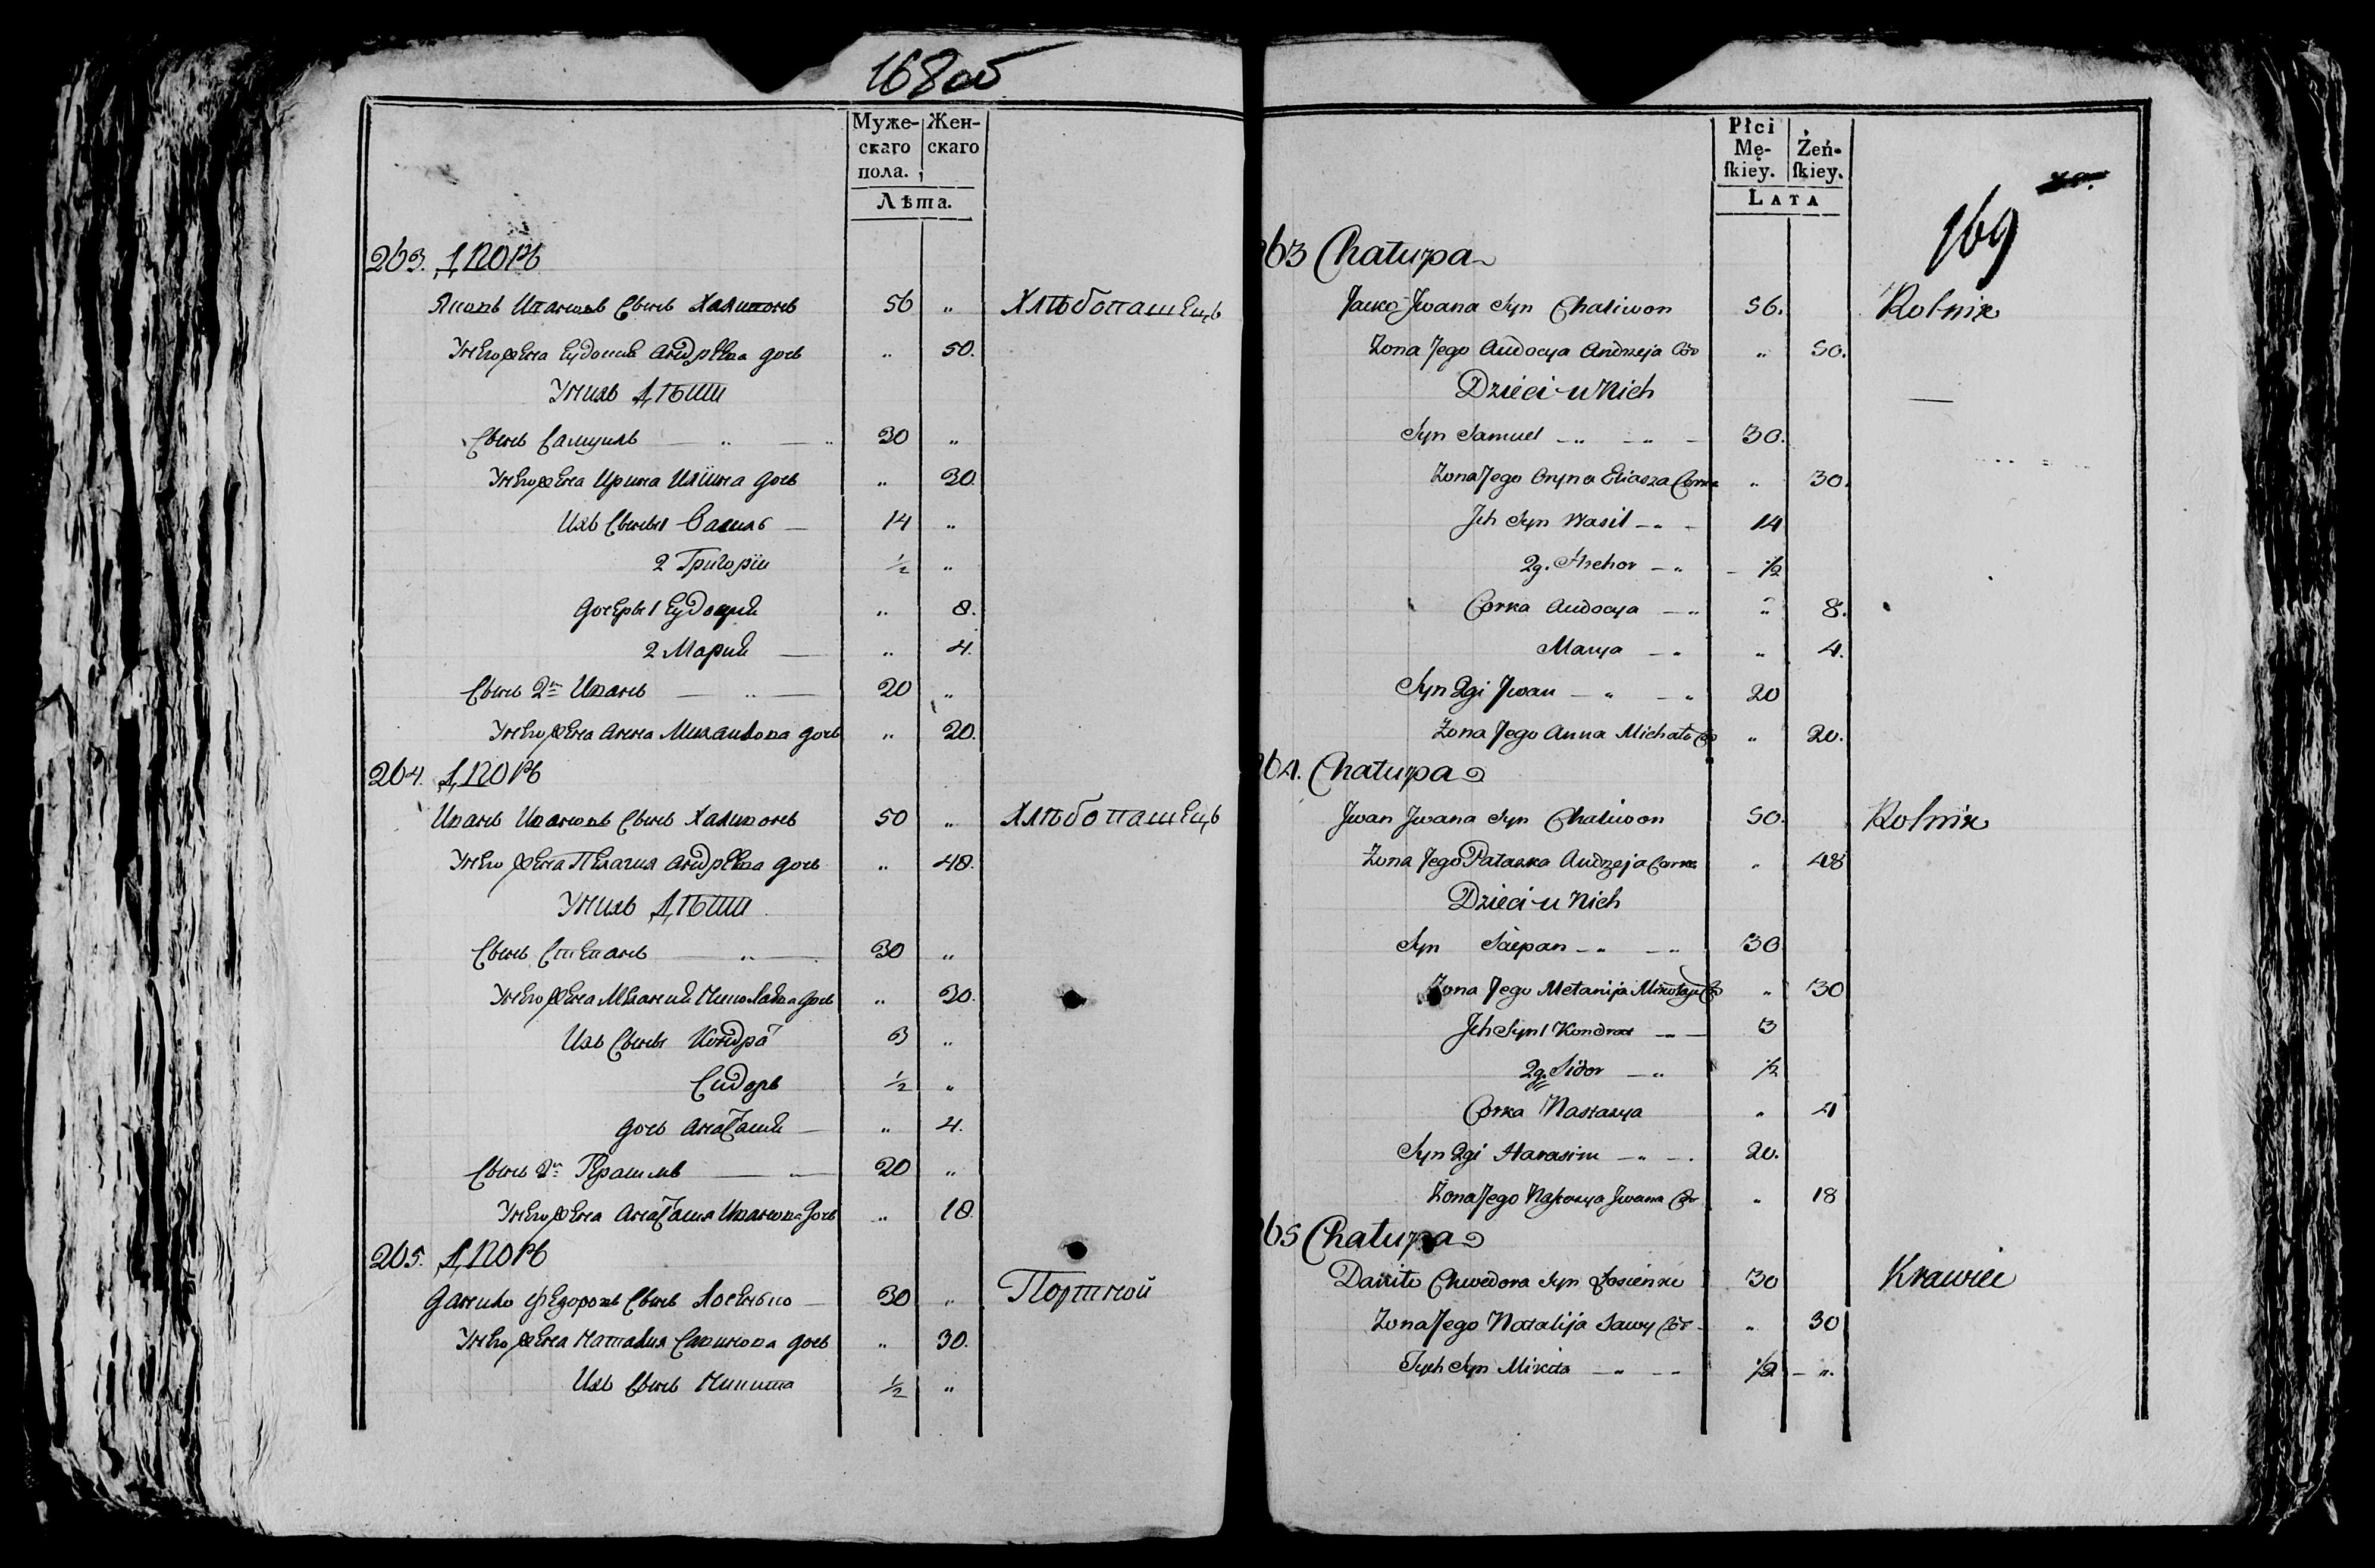 168об
Муже- Жен-
скаго скаго
пола.
Лѣта.
263. Дворъ
Яковъ Ивановъ Сынъ Халивонъ 56 „ Хлѣбопашецъ
Унего жена Еудокия Андрѣева дочь „ 50.
Унихъ Дѣти
Сынъ Самуилъ — „ — „ 30 „
Унего жена Ирина Илїина дочь „ 30
Ихъ Сыны 1 Василь — 14 „
2 Григорїи ½ „
Дочеры 1 Еудокия „ 8.
2 Мария — „ 4.
Сынъ 2й Иванъ — „ — 20 „
Унего жена Анна Михаилова дочь „ 20.
264. Дворъ
Иванъ Ивановъ Сынъ Халивонъ 50 „ Хлѣбопашецъ
Унего жена Пелагия Андрѣева дочь „ 48.
Унихъ Дѣти
Сынъ Степанъ — „ — 30 „
Унего жена Мелания Николаева дочь „ 30.
Ихъ Сыны Кондра 3 „
Сидоръ ½ „
Дочь Анастасия — „ 4.
Сынъ 2й Герасимъ — 20 „
Унего жена Анастасия Иванова дочь „ 18.
265. Дворъ
Данило Федоровъ Сынъ Лосенько — 30 „ Портной
Унего жена Наталия Савинова дочь „ 30.
Ихъ Сынъ Никита ½ „
Płci
Mę- Żeń-
ſkiey. ſkiey.
Lata
169
63 Chałupa
Jacko Jwana Syn Chaliwon 56. Rolnik
Zona Jego Audocya Andrzeja Cór „ 50.
Dzieci u Nich
Syn Samuel — „ — „ — 30.
Zona Jego Oryna Eliasza Corka „ 30.
Jch Syn Wasil — „ — 14
2g. Hrehor — „ — ½
Corka Audocya — „ „ 8.
Marya — „ „ 4.
Syn 2gi Jwan — „ — „ 20
Zona Jego Anna Michała Co „ 20.
64. Chałupa
Jwan Jwana Syn Chaliwon 50. Rolnik
Zona Jego Palaska Andrzeja Corka „ 48
Dzieci u Nich
Syn Sciepan — „ — „ 30
Zona Jego Melanija Mikołaja Co „ 30
Jch Syn 1 Kondrat — „ — 3
2g. Sidor — „ ½
Corka Nastasya „ 4
Syn 2gi Harasim — „ — 20.
Zona Jego Nastasya Jwana Cor „ 18
65 Chałupa
Daniło Chwedora Syn Łosienko 30 Krawiec
Zona Jego Natalija Sawy Cór — „ 30
Jych Syn Mikita — „ — ½ — „.